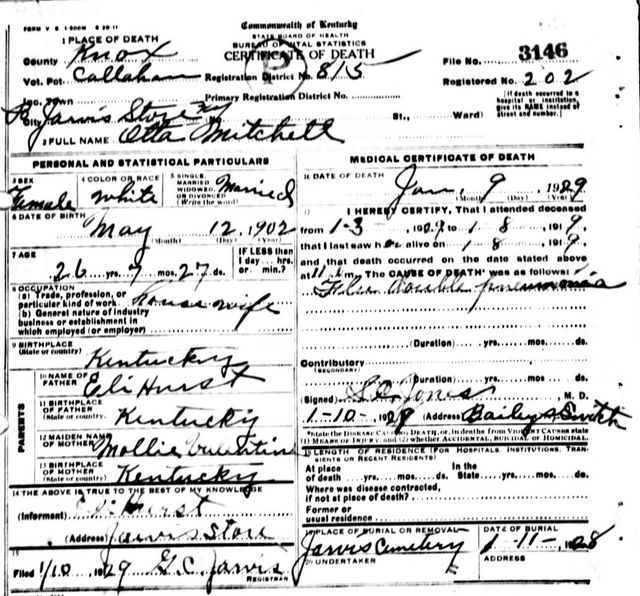 FORM V S 1-500M 6 20-11
Commonwealth of Kentucky
STATE BOARD OF HEALTH
BUREAU OF VITAL STATISTICS
CERTIFICATE OF DEATH
1 PLACE OF DEATH
County Knox
File No. 3146
Vot. Pct. Callahan Registration District No. 815
Registered No. 202
Inc. Town Primary Registration District No.
City Jarvis Store No. St., Ward)
[If death occurred in a hospital or institution, give its NAME instead of street and number.]
2 FULL NAME Otta Mitchell
PERSONAL AND STATISTICAL PARTICULARS
3 SEX Female
4 COLOR OR RACE White
5 SINGLE, MARRIED, WIDOWED, OR DIVORCED (Write the word) Married
6 DATE OF BIRTH
May 12, 1902
(Month) (Day) (Year)
7 AGE
26 yrs. 7 mos. 27 ds.
IF LESS than 1 day... hrs. or min.?
8 OCCUPATION
(a) Trade, profession, or particular kind of work house wife
(b) General nature of industry business or establishment in which employed (or employer)
9 BIRTHPLACE
(State or country) Kentucky
PARENTS
10 NAME OF FATHER Eli Hurst
11 BIRTHPLACE OF FATHER
(State or country) Kentucky
12 MAIDEN NAME OF MOTHER Mollie Valentine
13 BIRTHPLACE OF MOTHER
(State or country) Kentucky
14 THE ABOVE IS TRUE TO THE BEST OF MY KNOWLEDGE
(Informant) Eli Hurst
(Address) Jarvis Store
15
Filed 1/10 1929 G. C. Jarvis
REGISTRAR
MEDICAL CERTIFICATE OF DEATH
16 DATE OF DEATH
Jan. 9 1929
(Month) (Day) (Year)
17
I HEREBY CERTIFY, That I attended deceased
from 1-3 1929 to 1 8 1919.
that I last saw her alive on 1 8 1919.
and that death occurred on the date stated above
at 11 m. The CAUSE OF DEATH* was as follows:
Flu double pneumonia
(Duration) yrs. mos. ds.
Contributory
(SECONDARY)
(Duration) yrs. mos. ds.
(Signed) Jones M. D.
1-10- 1929 (Address) Baileys Switch
*State the DISEASE CAUSING DEATH, or, in deaths from VIOLENT CAUSES state (1) MEANS OF INJURY; and (2) whether ACCIDENTAL, SUICIDAL or HOMICIDAL.
18 LENGTH OF RESIDENCE (FOR HOSPITALS, INSTITUTIONS, TRANSIENTS OR RECENT RESIDENTS)
At place of death yrs. mos. ds. In the State yrs. mos. ds.
Where was disease contracted, if not at place of death?
Former or usual residence
19 PLACE OF BURIAL OR REMOVAL
Jarvis Cemetery
DATE OF BURIAL
1-11-1928
20 UNDERTAKER
ADDRESS